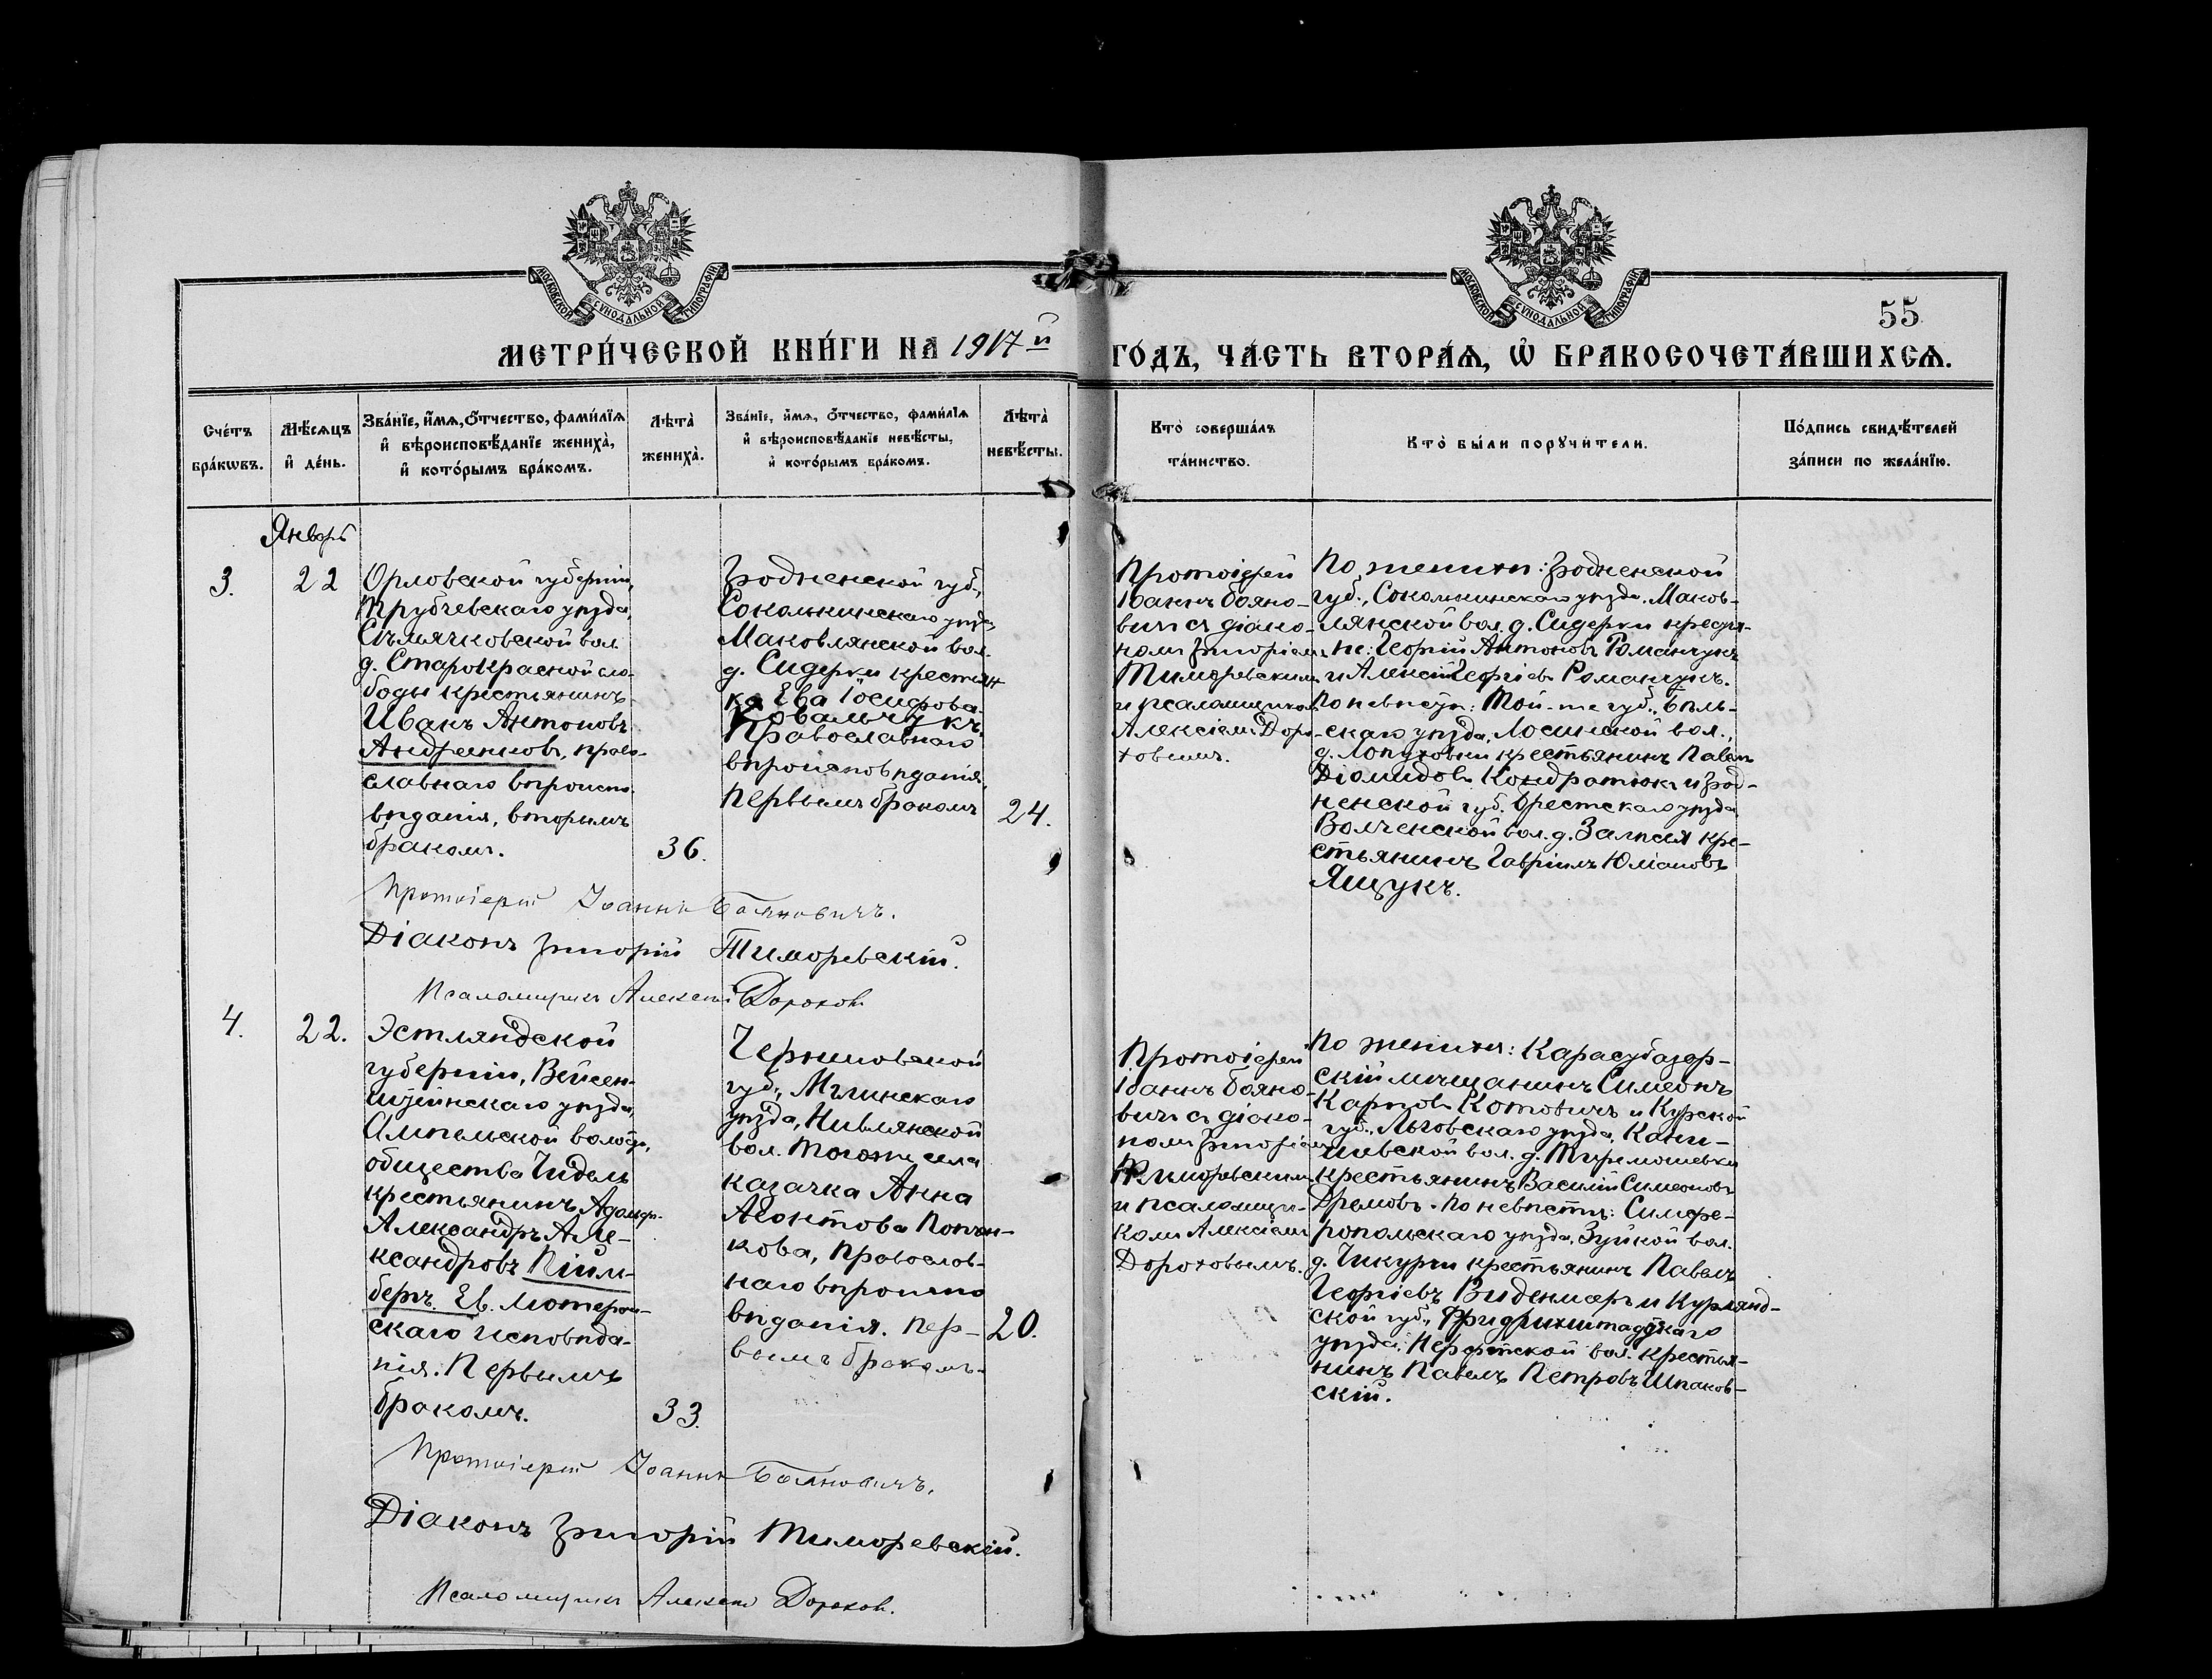 МОСКОВСКОЙ СѴНОДАЛЬНОЙ ТИПОГРАФІИ
МОСКОВСКОЙ СѴНОДАЛЬНОЙ ТИПОГРАФІИ
55
МЕТРИ́ЧЕСКОЙ КНИ́ГИ НА 1917й
ГО́ДЪ, ЧА́СТЬ ВТОРА́Ѧ, Ѽ БРАКОСОЧЕТА́ВШИХСѦ.
Сче́тъ
бра́кѡвъ.
Мѣ́сѧцъ
и҆ де́нь.
Зва́нїе, и҆́мѧ, ѻ҆́тчество, фами́лїѧ
и҆ вѣроисповѣ́данїе жениха̀,
и҆ кото́рымъ бра́комъ.
Лѣ́та
жениха̀.
Зва́нїе, и҆́мѧ, ѻ҆́тчество, фами́лїѧ
и҆ вѣроисповѣ́данїе невѣ́сты,
и҆ кото́рымъ бра́комъ.
Лѣ́та
невѣ́сты.
Кто̀ соверша́лъ
та́инство.
Кто̀ бы́ли порꙋчи́тели.
По́дпись свидѣ́телей
за́писи по жела́нїю.
Январь
3.
22
Орловской губерніи,
Трубчевскаго уѣзда,
Сѣмячковской вол.
д. Старокрасной сло-
боды крестьянинъ
Иванъ Антоновъ
Андрешковъ, право-
славнаго вѣроиспо
вѣданія, вторымъ
бракомъ.
36.
Гродненской губ.,
Сокольнинскаго уѣзда,
Маковлянской вол.
д. Сидерки крестьян
ка Ева Іосифова
Ковальчукъ,
Православнаго
вѣроисповѣданія,
Первымъ бракомъ
24.
Протоіерей
Іоаннъ Бояно-
вичъ съ діако-
номъ Григоріемъ
Тиморевскимъ
и псаломщиком
Алексіемъ Доро
ховымъ.
По женихѣ: Гродненской
губ., Сокольнинскаго уѣзда, Маков-
лянской вол. д. Сидерки кресть-
не: Георгій Антоновъ Романчукъ
и Алексій Георгіевъ Романчукъ.
По невѣстѣ: Той-же губ., Бѣль-
скаго уѣзда, Лосинской вол.,
д. Лопуховки крестьянинъ Павелъ
Діомидовъ Кондратюкъ и Грод-
ненской губ. Брестскаго уѣзда
Волченской вол. д. Залѣсья кре-
стьянинъ Гавріилъ Юліановъ
Ящукъ.
Протоіерей Іоаннъ Бояновичъ.
Діаконъ Григорій Тиморевскій.
Псаломщикъ Алексій Дороховъ
4.
22.
Эстляндской
губерніи, Вейсен-
штейнскаго уѣзда,
Ампельской волости,
общества Чидель
крестьянинъ Адольф-
Александръ Але-
ксандровъ Пійм-
бергъ. Ев. Лютеран-
скаго исповѣда-
нія. Первымъ
бракомъ.
33.
Черниговской
губ., Мглинскаго
уѣзда, Нивлянской
вол. того же села
казачка Анна
Леонтова Попчен-
кова, Православ-
наго вѣроиспо
вѣданія. Пер-
вымъ бракомъ.
20.
Протоіерей
Іоаннъ Бояно-
вичъ съ діако-
номъ Григоріем
Тиморевскимъ
и псаломщи-
комъ Алексіемъ
Дороховымъ.
По женихѣ: Карасубазар-
скій мѣщанинъ Симеонъ
Карповъ Котовичъ и Курской
губ., Льговскаго уѣзда, Кони-
шевской вол. д. Тиремошевки
крестьянинъ Василій Симеоновъ
Дрѣмовъ. По невѣстѣ: Симфе-
ропольскаго уѣзда, Зуйской вол.
д. Чикурчи крестьянинъ Павелъ
Георгіевъ Виденмаеръ и Курлянд-
ской губ., Фридрихштадскаго
уѣзда, Нерфтской вол. крестья-
нинъ Павелъ Петровъ Шпаков-
скій.
Протоіерей Іоаннъ Бояновичъ.
Діаконъ Григорій Тиморевскій.
Псаломщикъ Алексій Дороховъ.